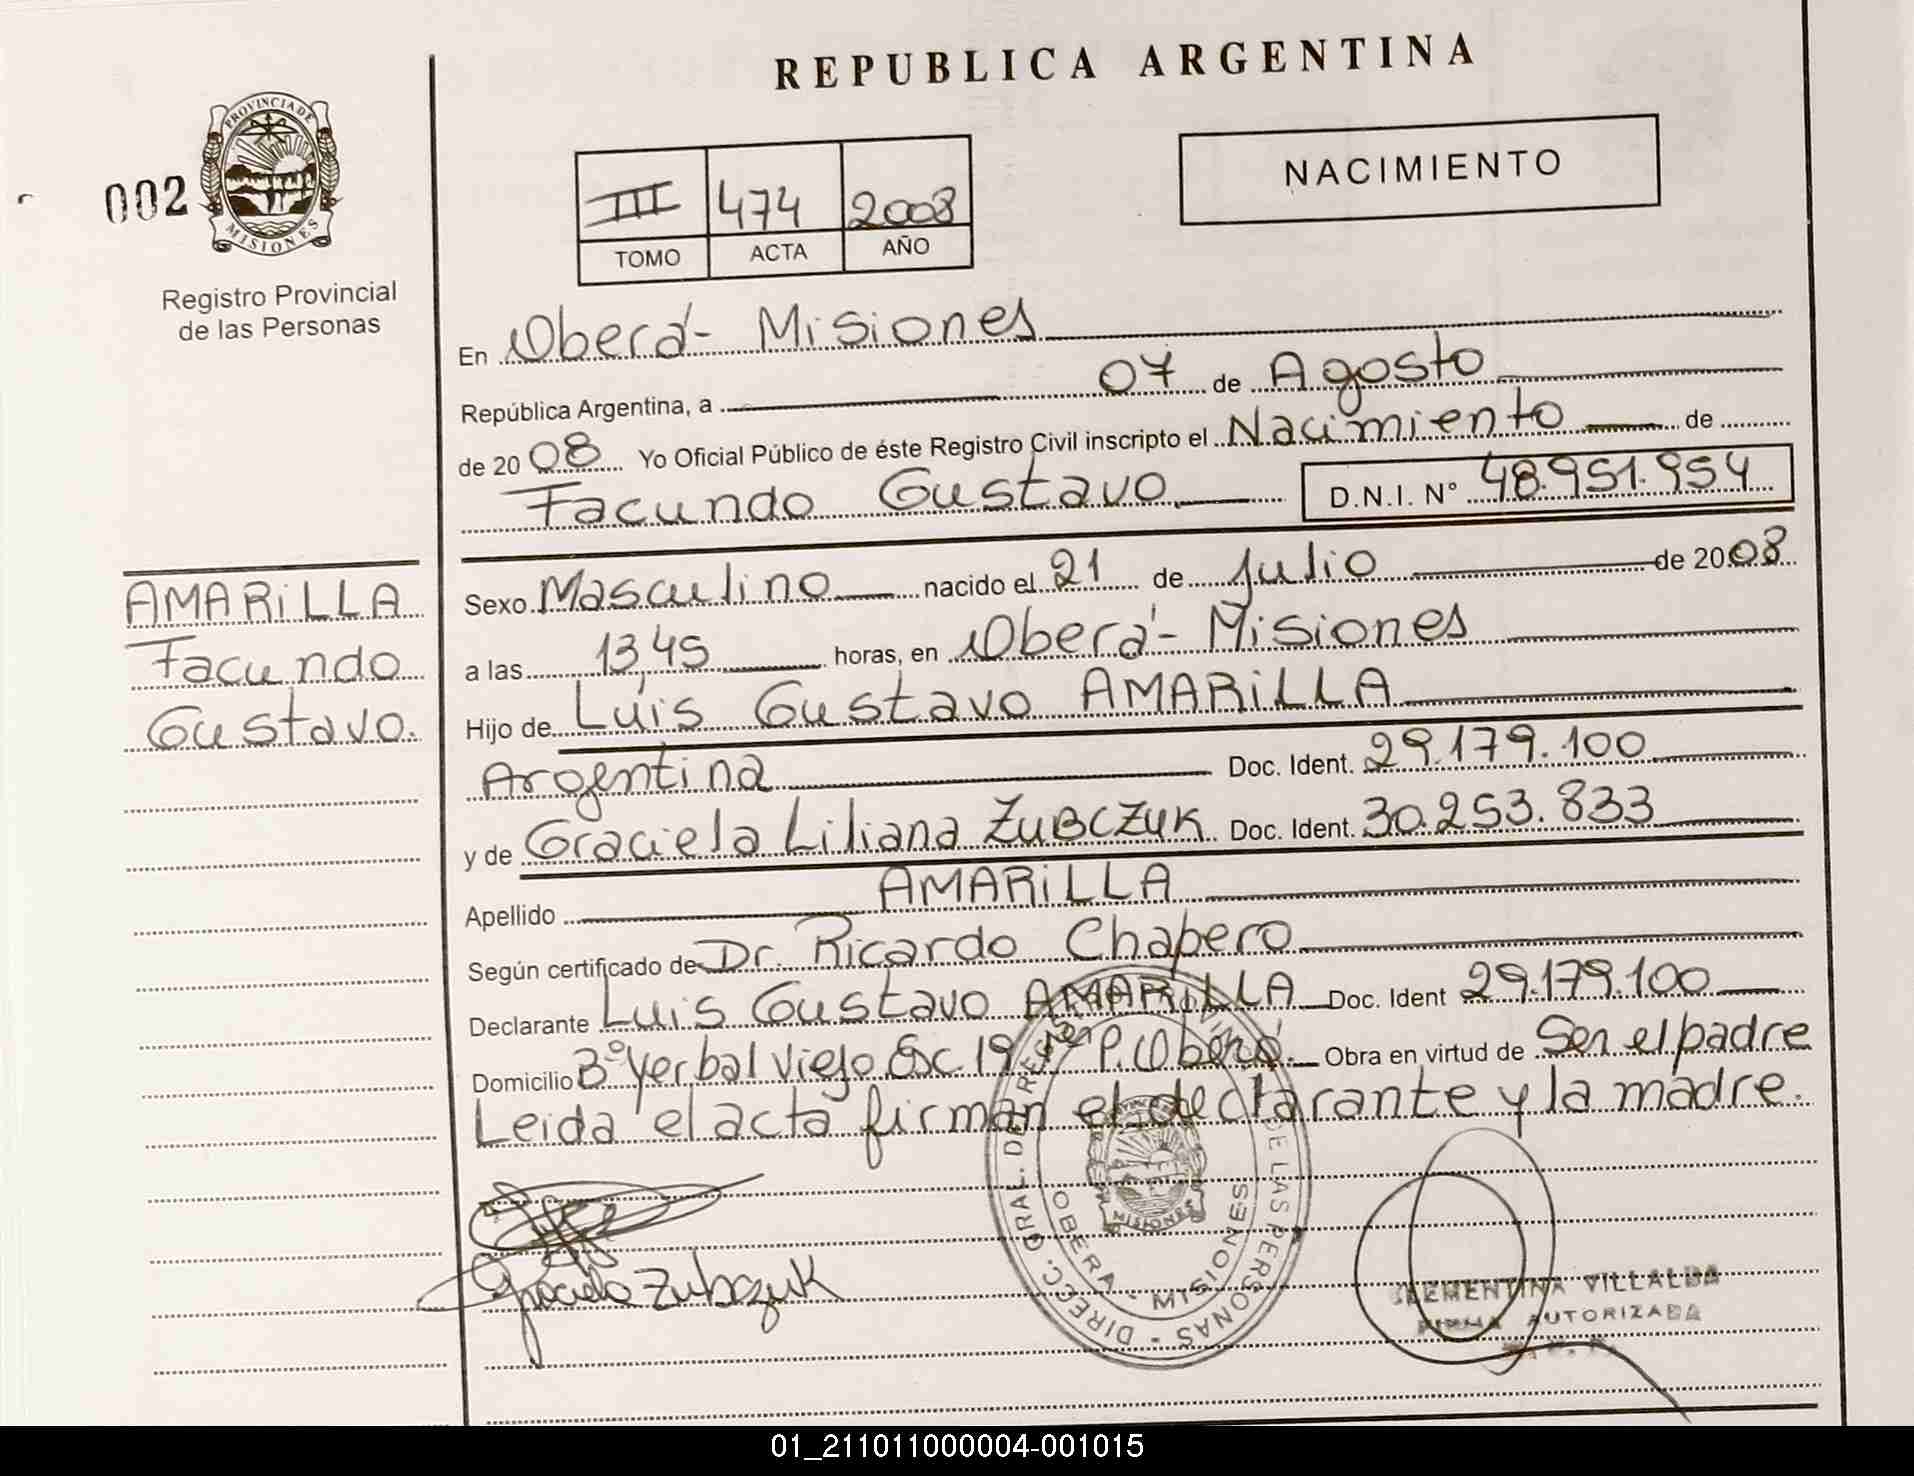 REPUBLICA ARGENTINA
PROVINCIA DE
MISIONES
002
Registro Provincial
de las Personas
NACIMIENTO
III 474 2008
TOMO ACTA AÑO
En Oberá - Misiones
República Argentina, a 07 de Agosto
de 20 08 Yo Oficial Público de éste Registro Civil inscripto el Nacimiento de
Facundo Gustavo D.N.I. N° 48.951.954
AMARiLLA
Facundo
Gustavo.
Sexo Masculino nacido el 21 de Julio de 20 08
a las 13,45 horas, en Oberá - Misiones
Hijo de Luis Gustavo AMARiLLA
Argentina Doc. Ident. 29.179.100
y de Graciela Liliana ZUBCZUK Doc. Ident. 30.253.833
Apellido AMARiLLA
Según certificado de Dr. Ricardo Chapero
Declarante Luis Gustavo AMARiLLA Doc. Ident 29.179.100
Domicilio B° Yerbal Viejo Esc 19 P. Oberá. Obra en virtud de Ser el padre
Leida el acta firman el declarante y la madre.
DIRECC. GRAL. DEL REG. PROVINCIAL DE LAS PERSONAS
OBERA - MISIONES
MISIONES
Graciela Zubczuk
CLEMENTINA VILLALBA
FIRMA AUTORIZADA
01_211011000004-001015